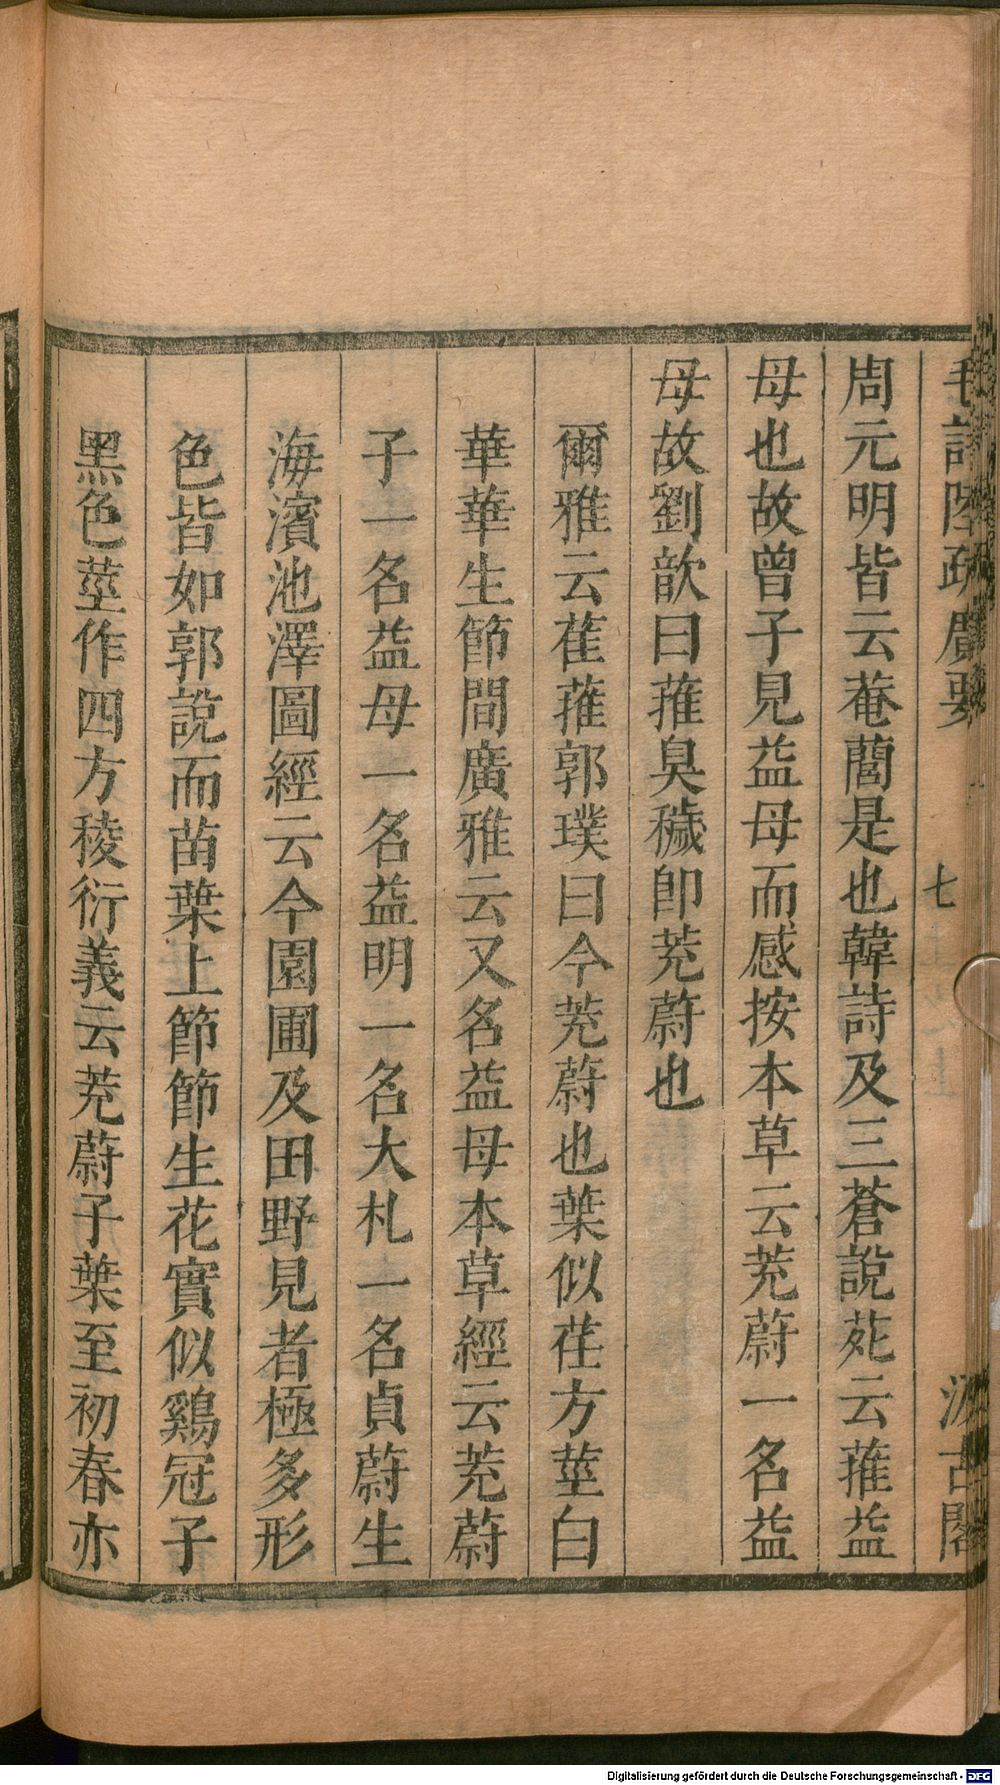 毛詩陸疏廣要
七
汲古閣
周元明皆云菴䕡是也韓詩及三蒼說苑云蓷益
母也故曾子見益母而感按本草云茺蔚一名益
母故劉歆曰蓷臭穢卽茺蔚也
爾雅云萑蓷郭璞曰今茺蔚也葉似荏方莖白
華華生節間廣雅云又名益母本草經云茺蔚
子一名益母一名益明一名大札一名貞蔚生
海濱池澤圖經云今園圃及田野見者極多形
色皆如郭說而苗葉上節節生花實似鷄冠子
黑色莖作四方稜衍義云茺蔚子葉至初春亦
Digitalisierung gefördert durch die Deutsche Forschungsgemeinschaft - DFG